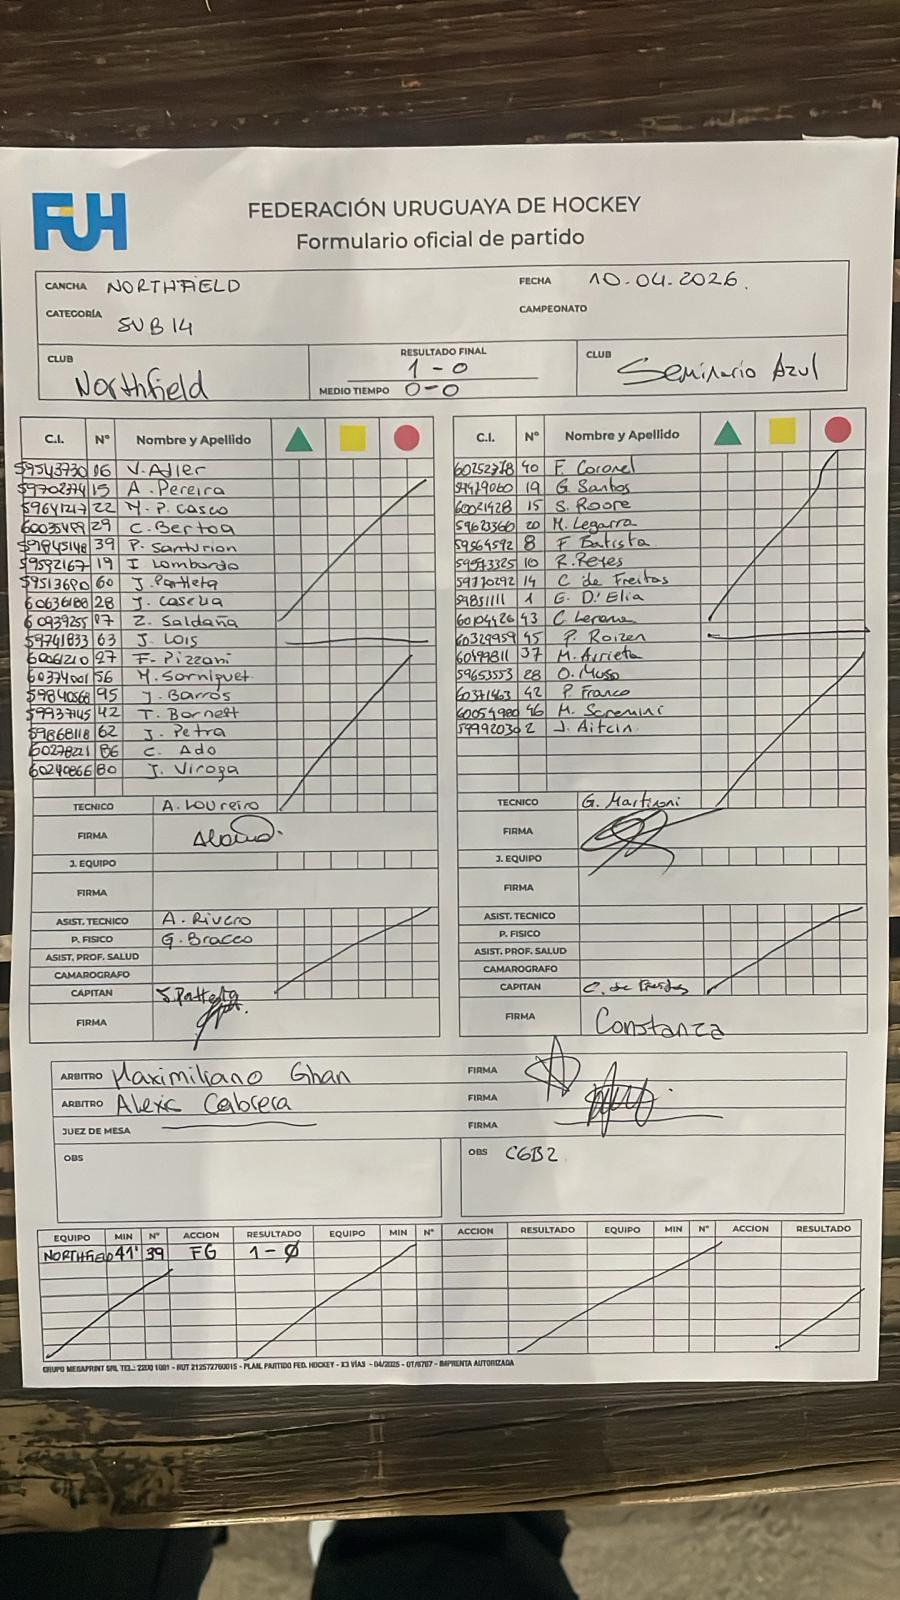 FUH
FEDERACIÓN URUGUAYA DE HOCKEY
Formulario oficial de partido
CANCHA NORTHFIELD FECHA 10.04.2026.
CATEGORÍA SUB 14 CAMPEONATO
CLUB Northfield
RESULTADO FINAL 1-0
MEDIO TIEMPO 0-0
CLUB Seminario Azul
C.I. N° Nombre y Apellido
59543730 06 V. Adler
59702374 15 A. Pereira
59641247 22 M. P. Casco
60035489 29 C. Bertoa
59845148 39 P. Santurion
59592167 19 I Lombardo
59513690 60 J.
60636188 28 J.
60939255 07 Z. Saldaña
59741833 63 J. Lois
60061210 27 F. Pizzani
60374001 56 M. Sorniguet
59840568 95 J. Barros
59937145 42 T. Barnett
59868118 62 J. Petra
60278221 86 C. Ado
60240866 80 J. Viroga
TECNICO A. Loureiro
FIRMA
J. EQUIPO
FIRMA
ASIST. TECNICO A. Rivero
P. FISICO G. Bracco
ASIST. PROF. SALUD
CAMAROGRAFO
CAPITAN
FIRMA
C.I. N° Nombre y Apellido
60252778 40 F. Coronel
19 G. Santos
60021928 15 S. Roore
59623360 20 M. Legarra
59564592 8 F Batista
59573325 10 R. Reyes
59770292 14 C de Freitas
59851111 1 E. D'Elia
60104426 43 C. Lerena
60329959 45 P. Roizen
60499811 37 M. Arrieta
59653553 28 O. Muso
60371463 42 P. Franco
60054980 46 M. Scremini
59992030 2 J. Aitcin
TECNICO G. Martinoni
FIRMA
J. EQUIPO
FIRMA
ASIST. TECNICO
P. FISICO
ASIST. PROF. SALUD
CAMAROGRAFO
CAPITAN C. de Freitas
FIRMA Constanza
ARBITRO Maximiliano Ghan FIRMA
ARBITRO Alexis Cabrera FIRMA
JUEZ DE MESA FIRMA
OBS
OBS CGB2
EQUIPO MIN N° ACCION RESULTADO EQUIPO MIN N° ACCION RESULTADO EQUIPO MIN N° ACCION RESULTADO
NORTHFIELD 41' 39 FG 1-0
GRUPO MEGAPRINT SRL TEL.: 2200 1001 - RUT 212572760015 - PLAN. PARTIDO FED. HOCKEY - X3 VÍAS - 04/2025 - OT/6767 - IMPRENTA AUTORIZADA